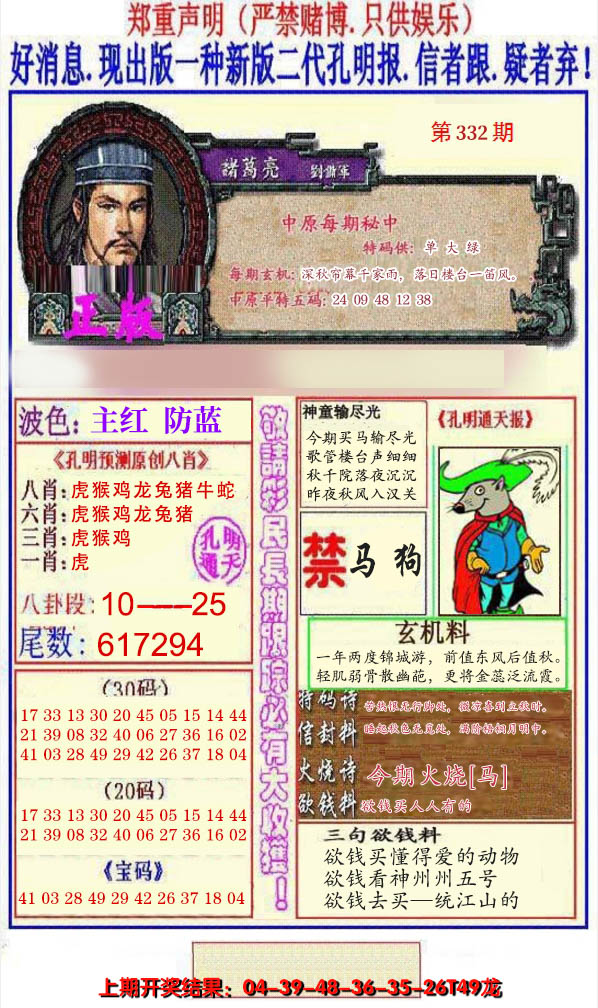 郑重声明（严禁赌博.只供娱乐）
好消息.现出版一种新版二代孔明报.信者跟.疑者弃！
第332期
諸葛亮 劉備軍
中原每期秘中
特码供：单大绿
每期玄机：深秋帘幕千家雨，落日楼台一笛风。
中原平特五码：24 09 48 12 38
正版
波色：主红 防蓝
《孔明预测原创八肖》
八肖：虎猴鸡龙兔猪牛蛇
六肖：虎猴鸡龙兔猪
三肖：虎猴鸡
一肖：虎
孔明
通天
八卦段：10——25
尾数：617294
（30码）
17 33 13 30 20 45 05 15 14 44
21 39 08 32 40 06 27 36 16 02
41 03 28 49 29 42 26 37 18 04
（20码）
17 33 13 30 20 45 05 15 14 44
21 39 08 32 40 06 27 36 16 02
《宝码》
41 03 28 49 29 42 26 37 18 04
敬請彩民長期跟踪必有大收獲！
神童输尽光
今期买马输尽光
歌管楼台声细细
秋千院落夜沉沉
昨夜秋风入汉关
《孔明通天报》
禁马狗
玄机料
一年两度锦城游，前值东风后值秋。
轻肌弱骨散幽葩，更将金蕊泛流霞。
特码诗 苦热恨无行脚处，微凉喜到立秋时。
信封料 睡起秋色无觅处，满阶梧桐月明中。
火烧诗 今期火烧[马]
欲钱料 欲钱买人人有的
三句欲钱料
欲钱买懂得爱的动物
欲钱看神州州五号
欲钱去买一统江山的
上期开奖结果：04-39-48-36-35-26T49龙